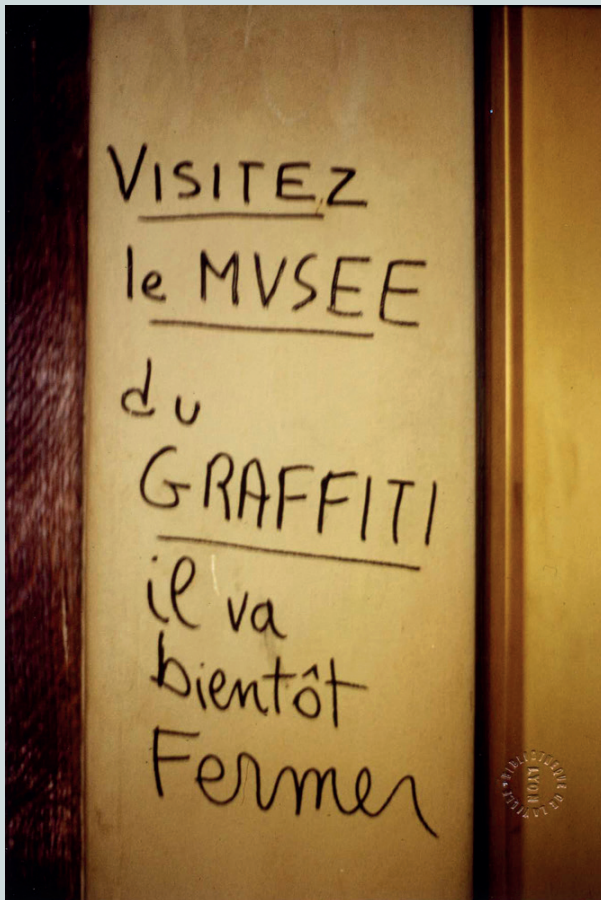 VISITEZ
le MVSEE
du
GRAFFITI
il va
bientôt
Fermer
BIBLIOTHEQUE DE LA VILLE
LYON